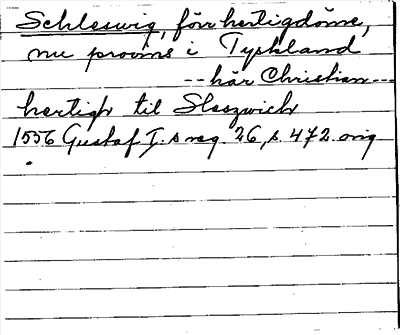 Schleswig, förr hertigdöme,
nu provins i Tyskland
-- här Christian --
hertigh til Sleszwich
1556 Gustaf I:s reg. 26, s. 472. orig